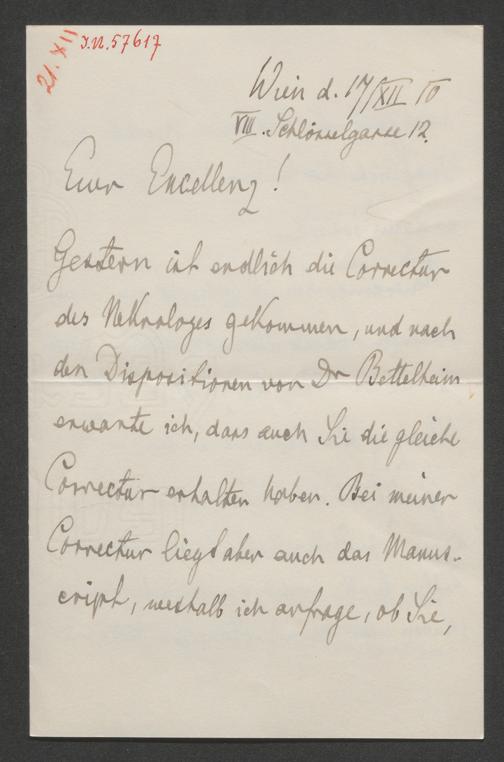 21. XII
I.N. 57617
Wien d. 17/XII 10
VIII. Schlösselgasse 12.
Euer Excellenz!
Gestern ist endlich die Correctur
des Nekrologes gekommen, und nach
den Dispositionen von Dr Bettelheim
erwarte ich, dass auch Sie die gleiche
Correctur erhalten haben. Bei meiner
Correctur liegt aber auch das Manus-
cript, weshalb ich anfrage, ob Sie,